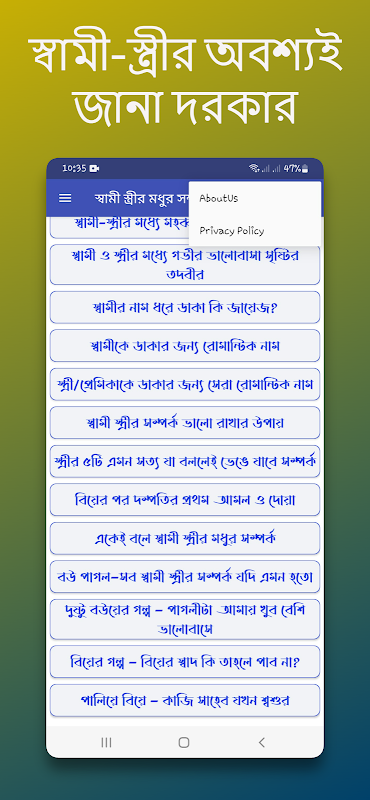 স্বামী-স্ত্রীর অবশ্যই
জানা দরকার
10:35
47%
স্বামী স্ত্রীর মধুর
AboutUs
Privacy Policy
স্বামী-স্ত্রীর মধ্যে
স্বামী ও স্ত্রীর মধ্যে গভীর ভালোবাসা সৃষ্টির
তদবীর
স্বামীর নাম ধরে ডাকা কি জায়েজ?
স্বামীকে ডাকার জন্য রোমান্টিক নাম
স্ত্রী/প্রেমিকাকে ডাকার জন্য সেরা রোমান্টিক নাম
স্বামী স্ত্রীর সম্পর্ক ভালো রাখার উপায়
স্ত্রীর ৫টি এমন সত্য যা বললেই ভেঙে যাবে সম্পর্ক
বিয়ের পর দম্পতির প্রথম আমল ও দোয়া
একেই বলে স্বামী স্ত্রীর মধুর সম্পর্ক
বউ পাগল-সব স্বামী স্ত্রীর সম্পর্ক যদি এমন হতো
দুষ্টু বউয়ের গল্প - পাগলীটা আমায় খুব বেশি
ভালোবাসে
বিয়ের গল্প - বিয়ের স্বাদ কি তাহলে পাব না?
পালিয়ে বিয়ে - কাজি সাহেব যখন শ্বশুর